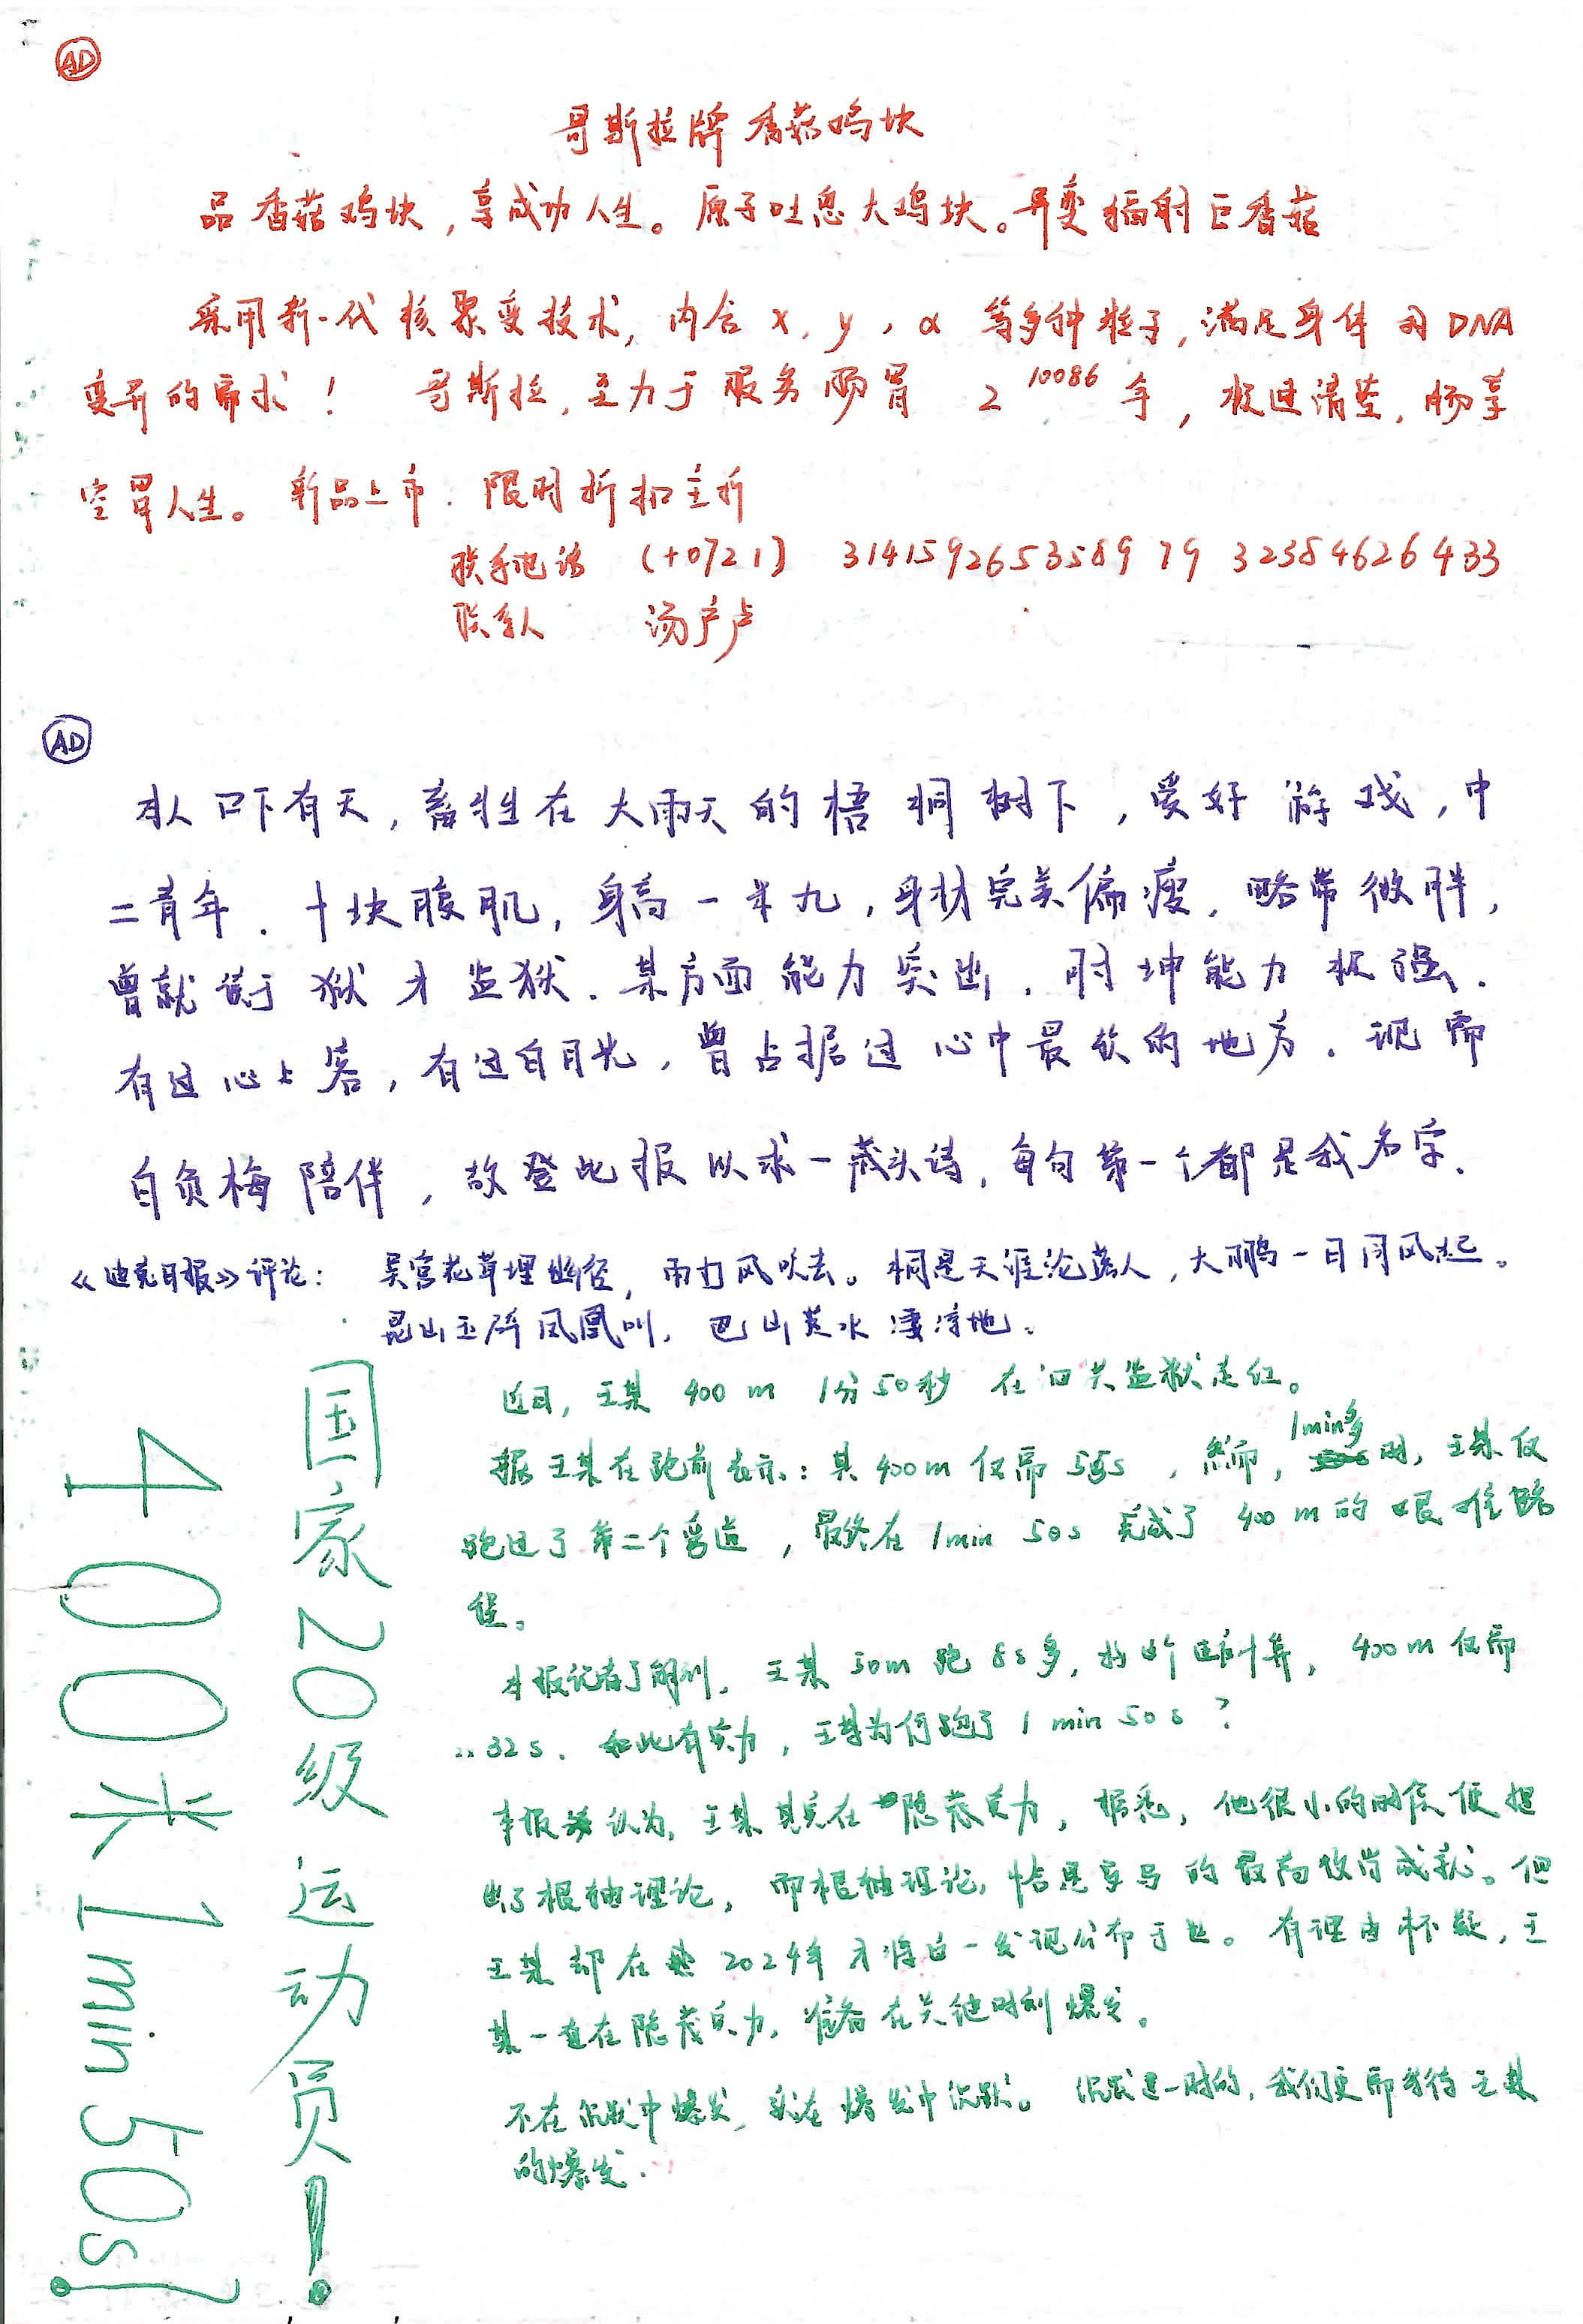 AD
哥斯拉牌香菇鸡块
品香菇鸡块,享成功人生。原子吐息大鸡块。异变辐射巨香菇
采用新一代核聚变技术,内含 x, y, α 等多种粒子,满足身体对DNA
变异的需求! 哥斯拉,主力于服务肠胃 2^10086 年,极速清楚,肠享
空胃人生。新品上市. 限时折扣主折
联系电话 (+0721) 31415926535897932384626433
联系人 汤产卢
AD
本人口下有天,畜牲在大雨天的梧桐树下,爱好游戏,中
二青年.十块腹肌,身高一米九,身材完美偏瘦.略带微胖,
曾就读于狱才监狱.某方面能力突出.肘坤能力极强.
有过心上客,有过白月光,曾占据过心中最软的地方.现需
白负梅陪伴,故登此报以求一藏头诗,每句第一个都是我名字.
《迪克日报》评论: 吴宫花草埋幽径,雨打风吹去。桐是天涯沦落人,大鹏一日同风起。
昆山玉碎凤凰叫,巴山楚水凄凉地。
国家20级运动员!
400米1min50s!
近日,王某 400m 1分50秒 在旧共监狱走红。
据王某在跑前表示:其400m仅需55s,然而,1min多时,王某仅
跑过了第二个弯道,最终在1min 50s 完成了400m的艰难路
程。
本报记者了解到,王某50m跑8s多,按这个速计算,400m仅需
32s.如此有实力,王某为何跑了1 min 50s?
本报认为,王某其实在隐藏实力,据悉,他很小的时候便提
出了根轴理论,而根轴理论,恰是亚马的最高数学成就。但
王某却在2024年才将这一发现公布于世。有理由怀疑,王
某一直在隐藏实力,准备在关键时刻爆发。
不在沉默中爆发,就在爆发中沉默。沉默是一时的,我们更需等待王某
的爆发.